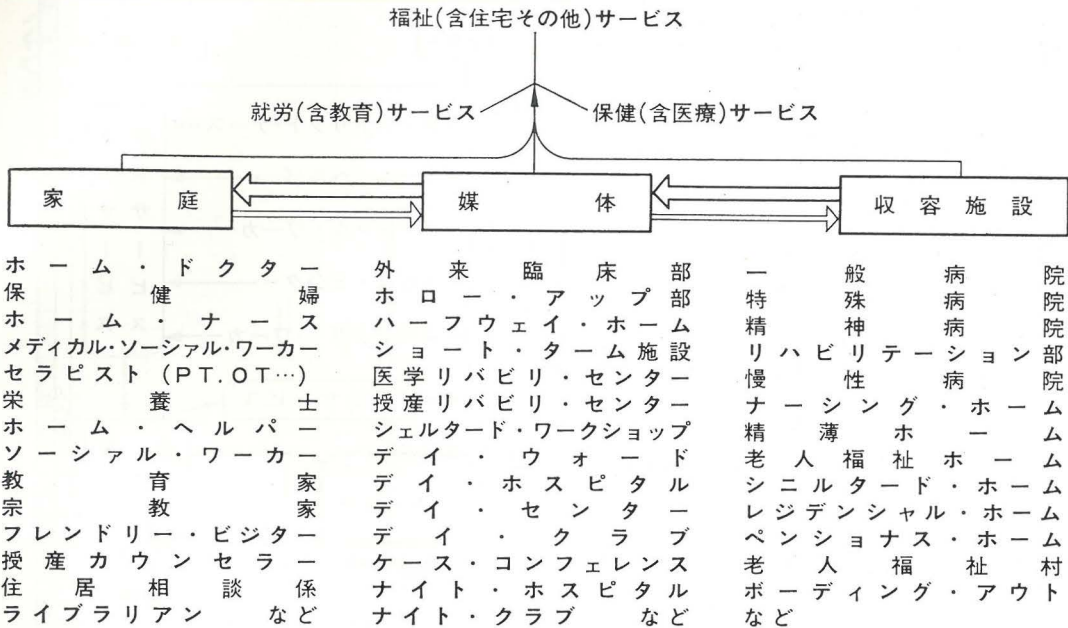 福祉(含住宅その他)サービス
就労(含教育)サービス
保健(含医療)サービス
家庭
媒体
収容施設
ホーム・ドクター
保健婦
ホーム・ナース
メディカル・ソーシァル・ワーカー
セラピスト(PT.OT…)
栄養士
ホーム・ヘルパー
ソーシァル・ワーカー
教育家
宗教家
フレンドリー・ビジター
授産カウンセラー
住居相談係
ライブラリアン など
外来臨床部
ホロー・アップ部
ハーフウェイ・ホーム
ショート・ターム施設
医学リバビリ・センター
授産リバビリ・センター
シェルタード・ワークショップ
デイ・ウォード
デイ・ホスピタル
デイ・センター
デイ・クラブ
ケース・コンフェレンス
ナイト・ホスピタル
ナイト・クラブ など
一般病院
特殊病院
精神病院
リハビリテーション部
慢性病院
ナーシング・ホーム
精薄ホーム
老人福祉ホーム
シニルタード・ホーム
レジデンシャル・ホーム
ペンショナス・ホーム
老人福祉村
ボーディング・アウト
など